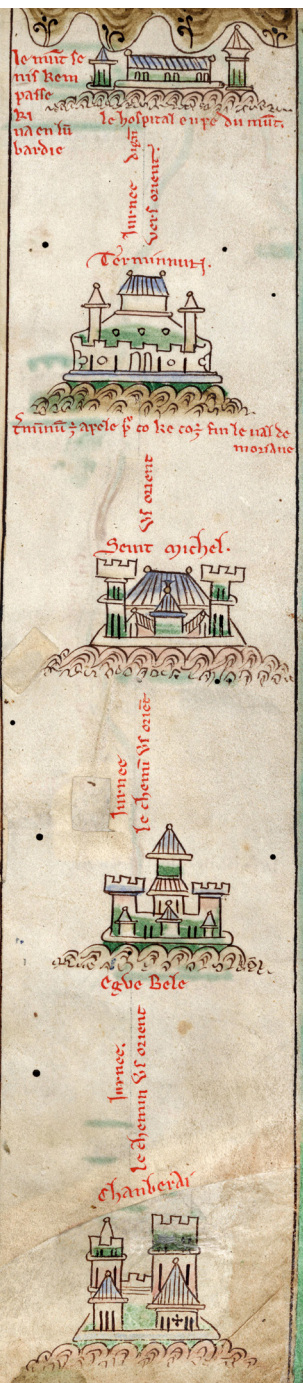 le munt se
nis kem
passe
ki
va en lū
bardie
le hospital en pe du mūt.
Jurnee
vers orient.
Terminnun.
apele
co ke
fin le val de
moriane
vs orient
Seint Michel.
Jurnee
le chemī vs oriēt
Egve Bele
Jurnee.
le chemin vs orient
Chanberai